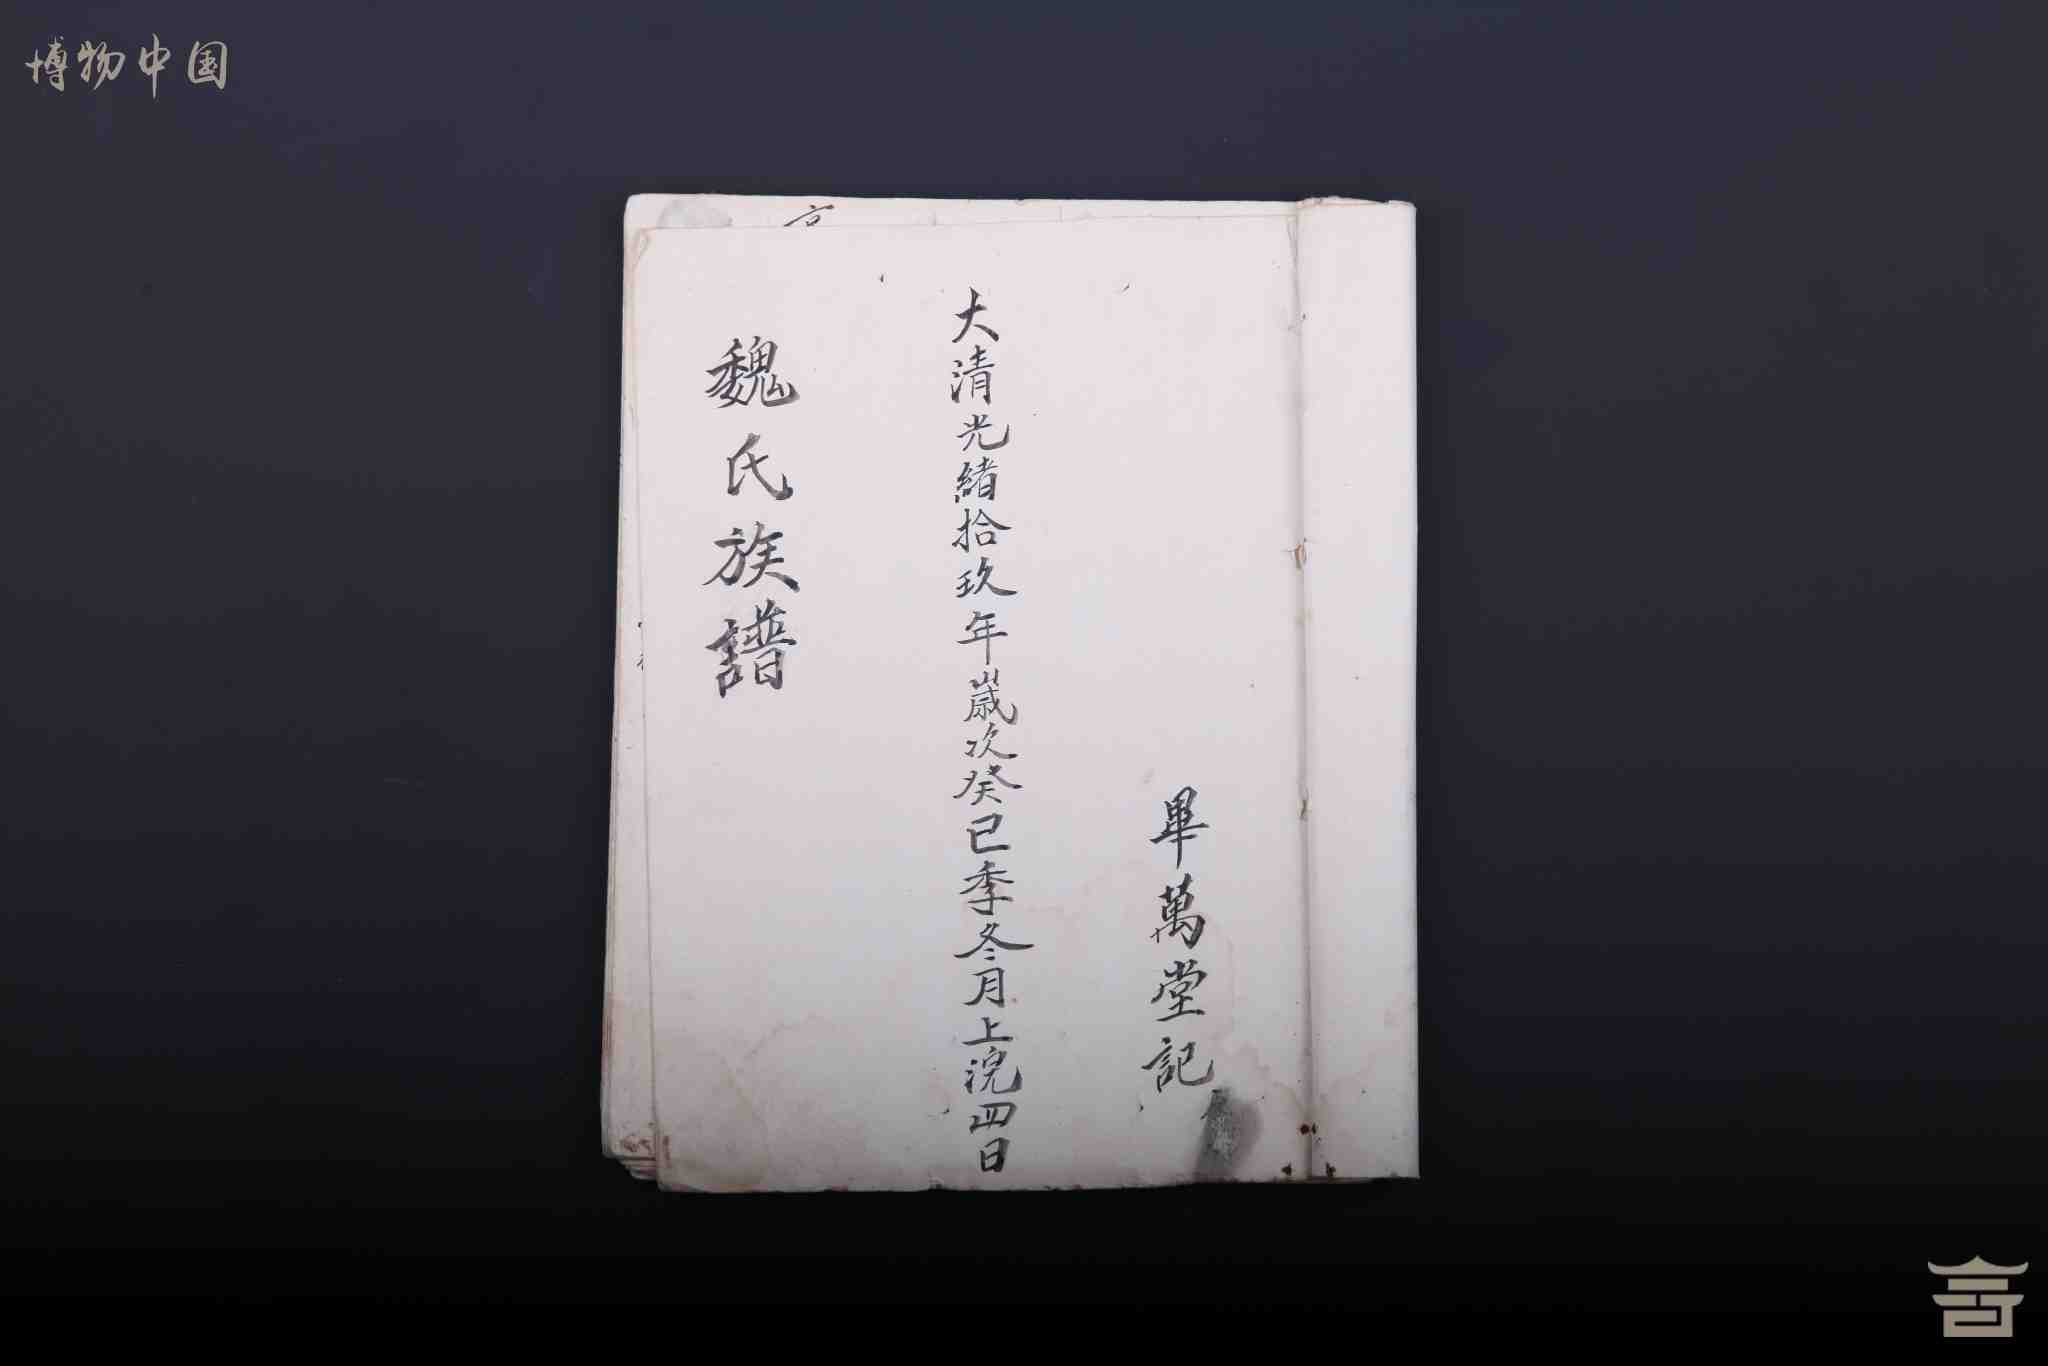 博物中国
畢萬堂記
大清光緒拾玖年歲次癸巳季冬月上浣四日
魏氏族譜